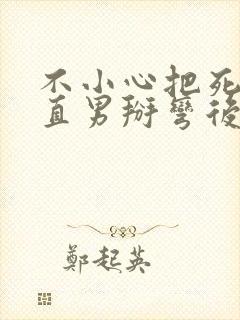 不小心把死
直男掰彎後
鄭起英